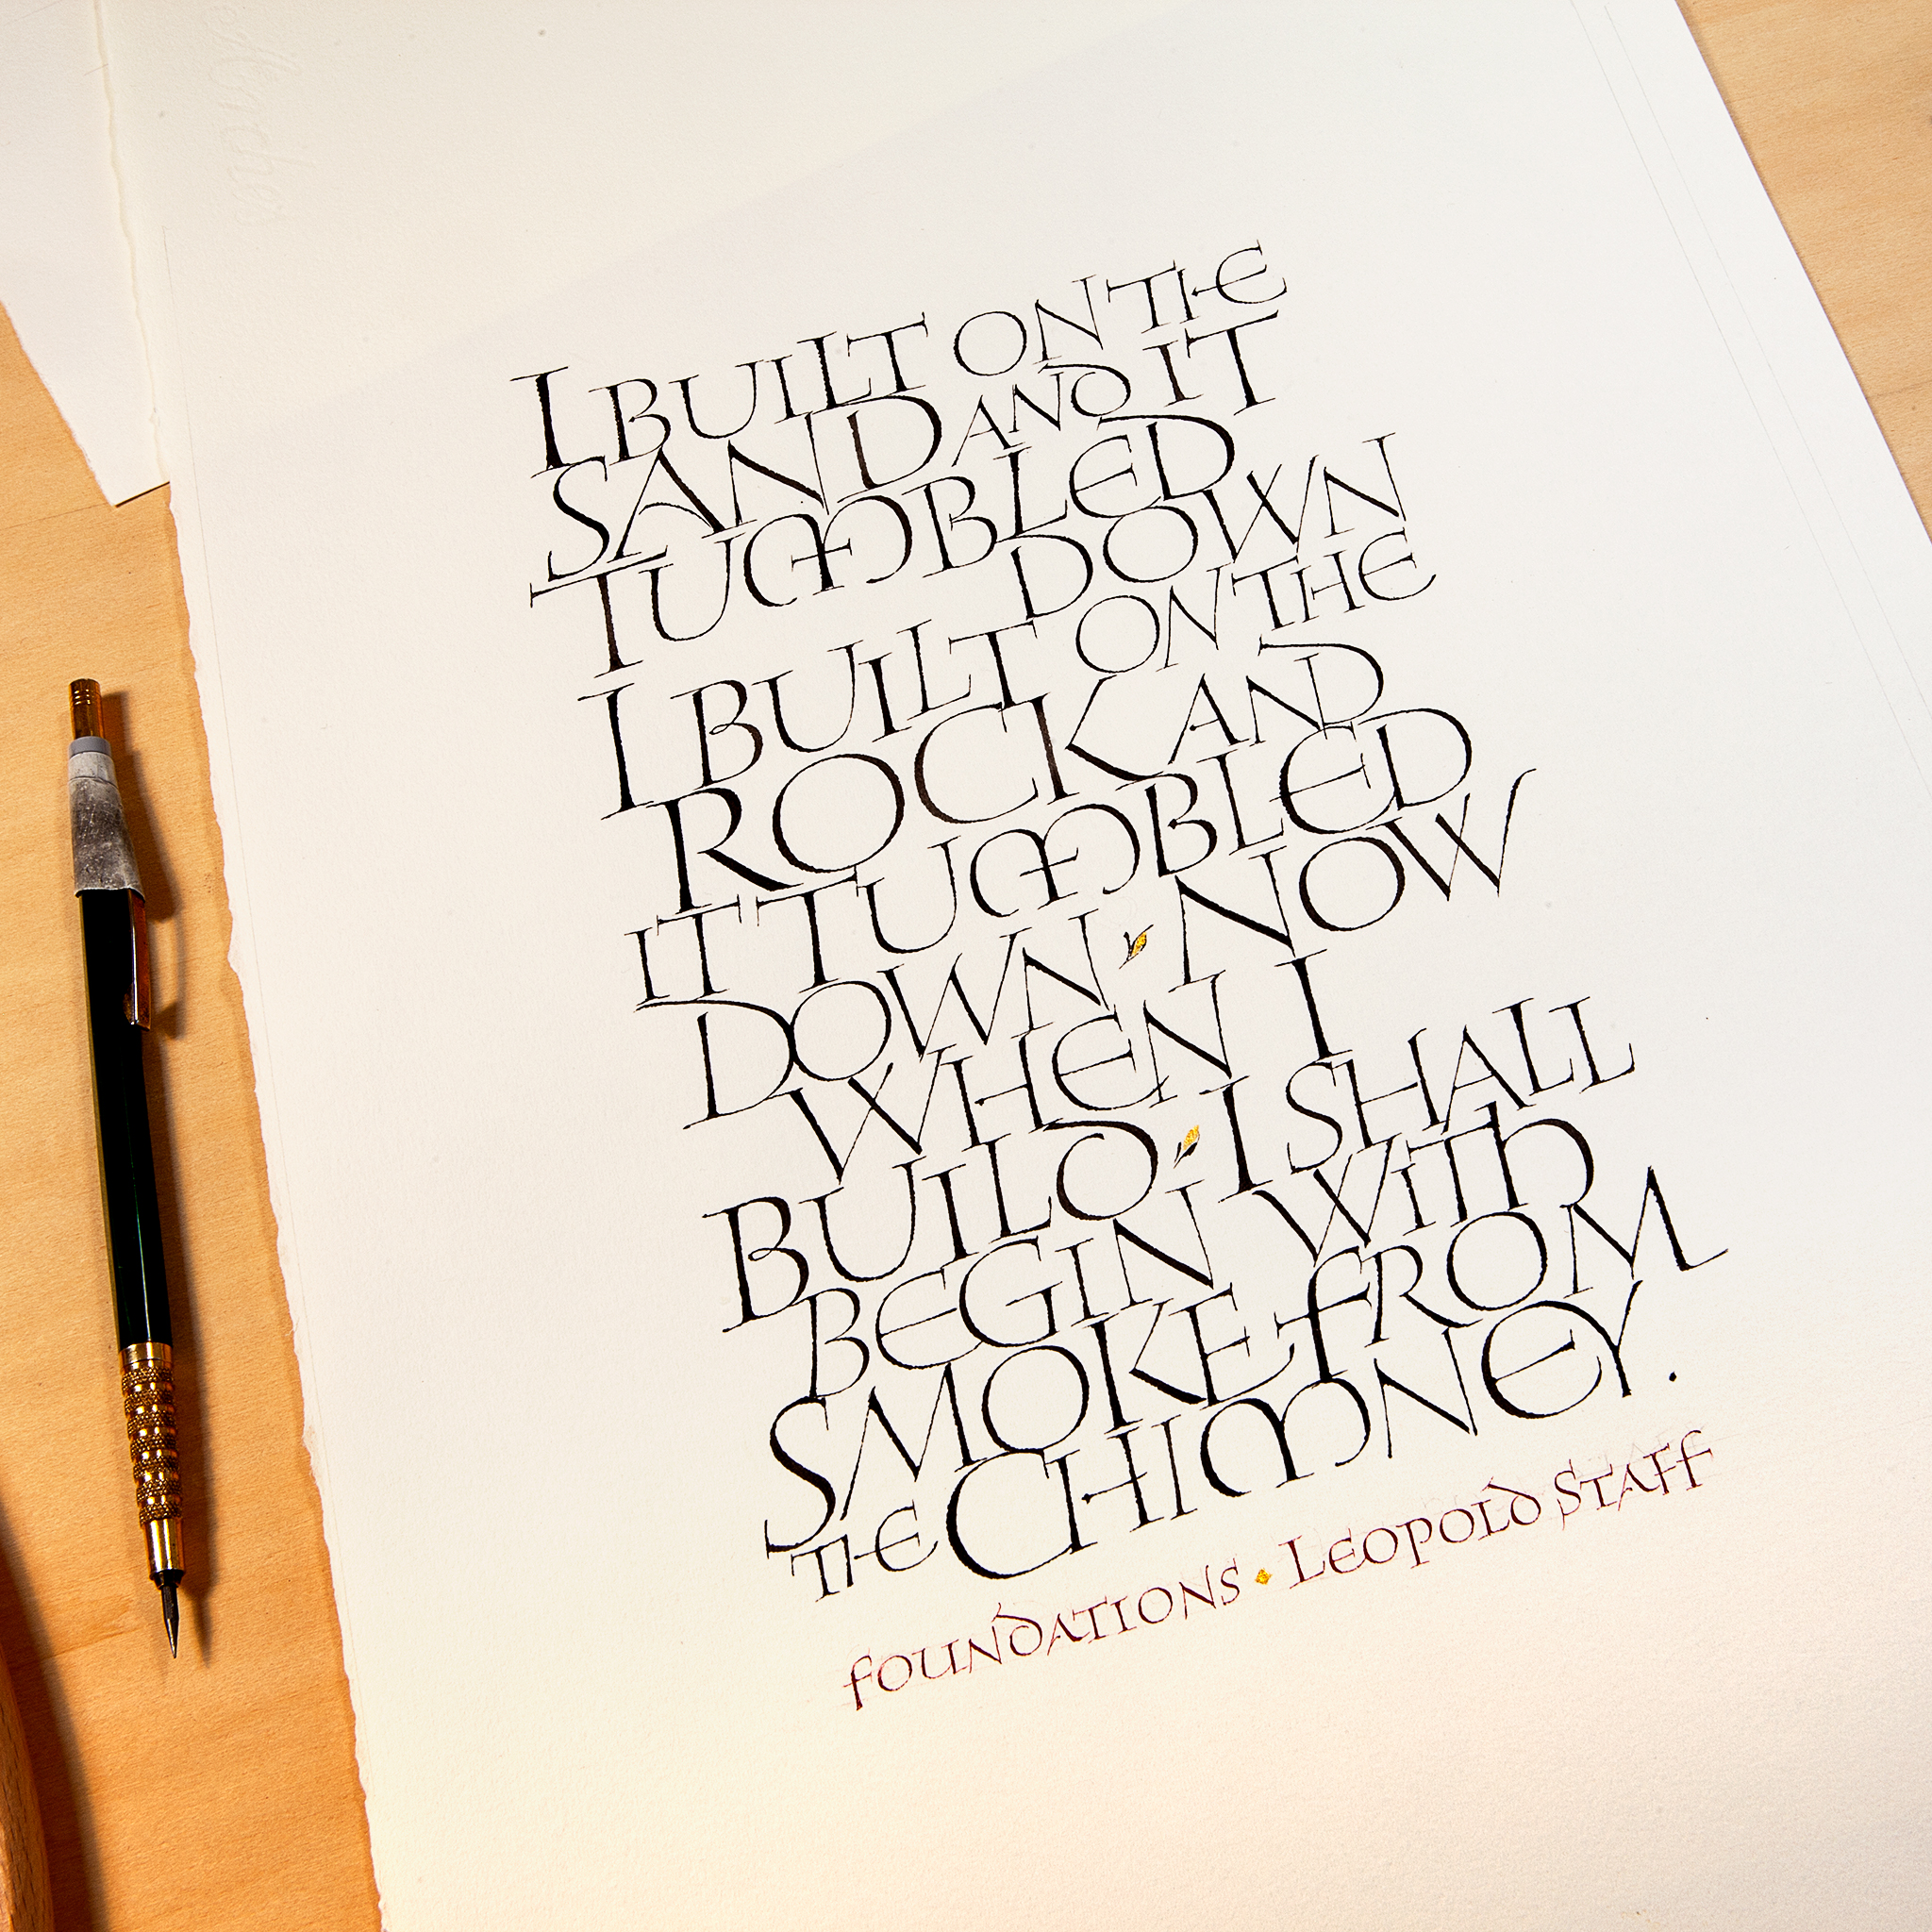 I BUILT ON THE
SAND AND IT
TUMBLED
DOWN
I BUILT ON THE
ROCK AND
IT TUMBLED
DOWN NOW
WHEN I
BUILD I SHALL
BEGIN WITH
SMOKE FROM
THE CHIMNEY.
FOUNDATIONS • LEOPOLD STAFF